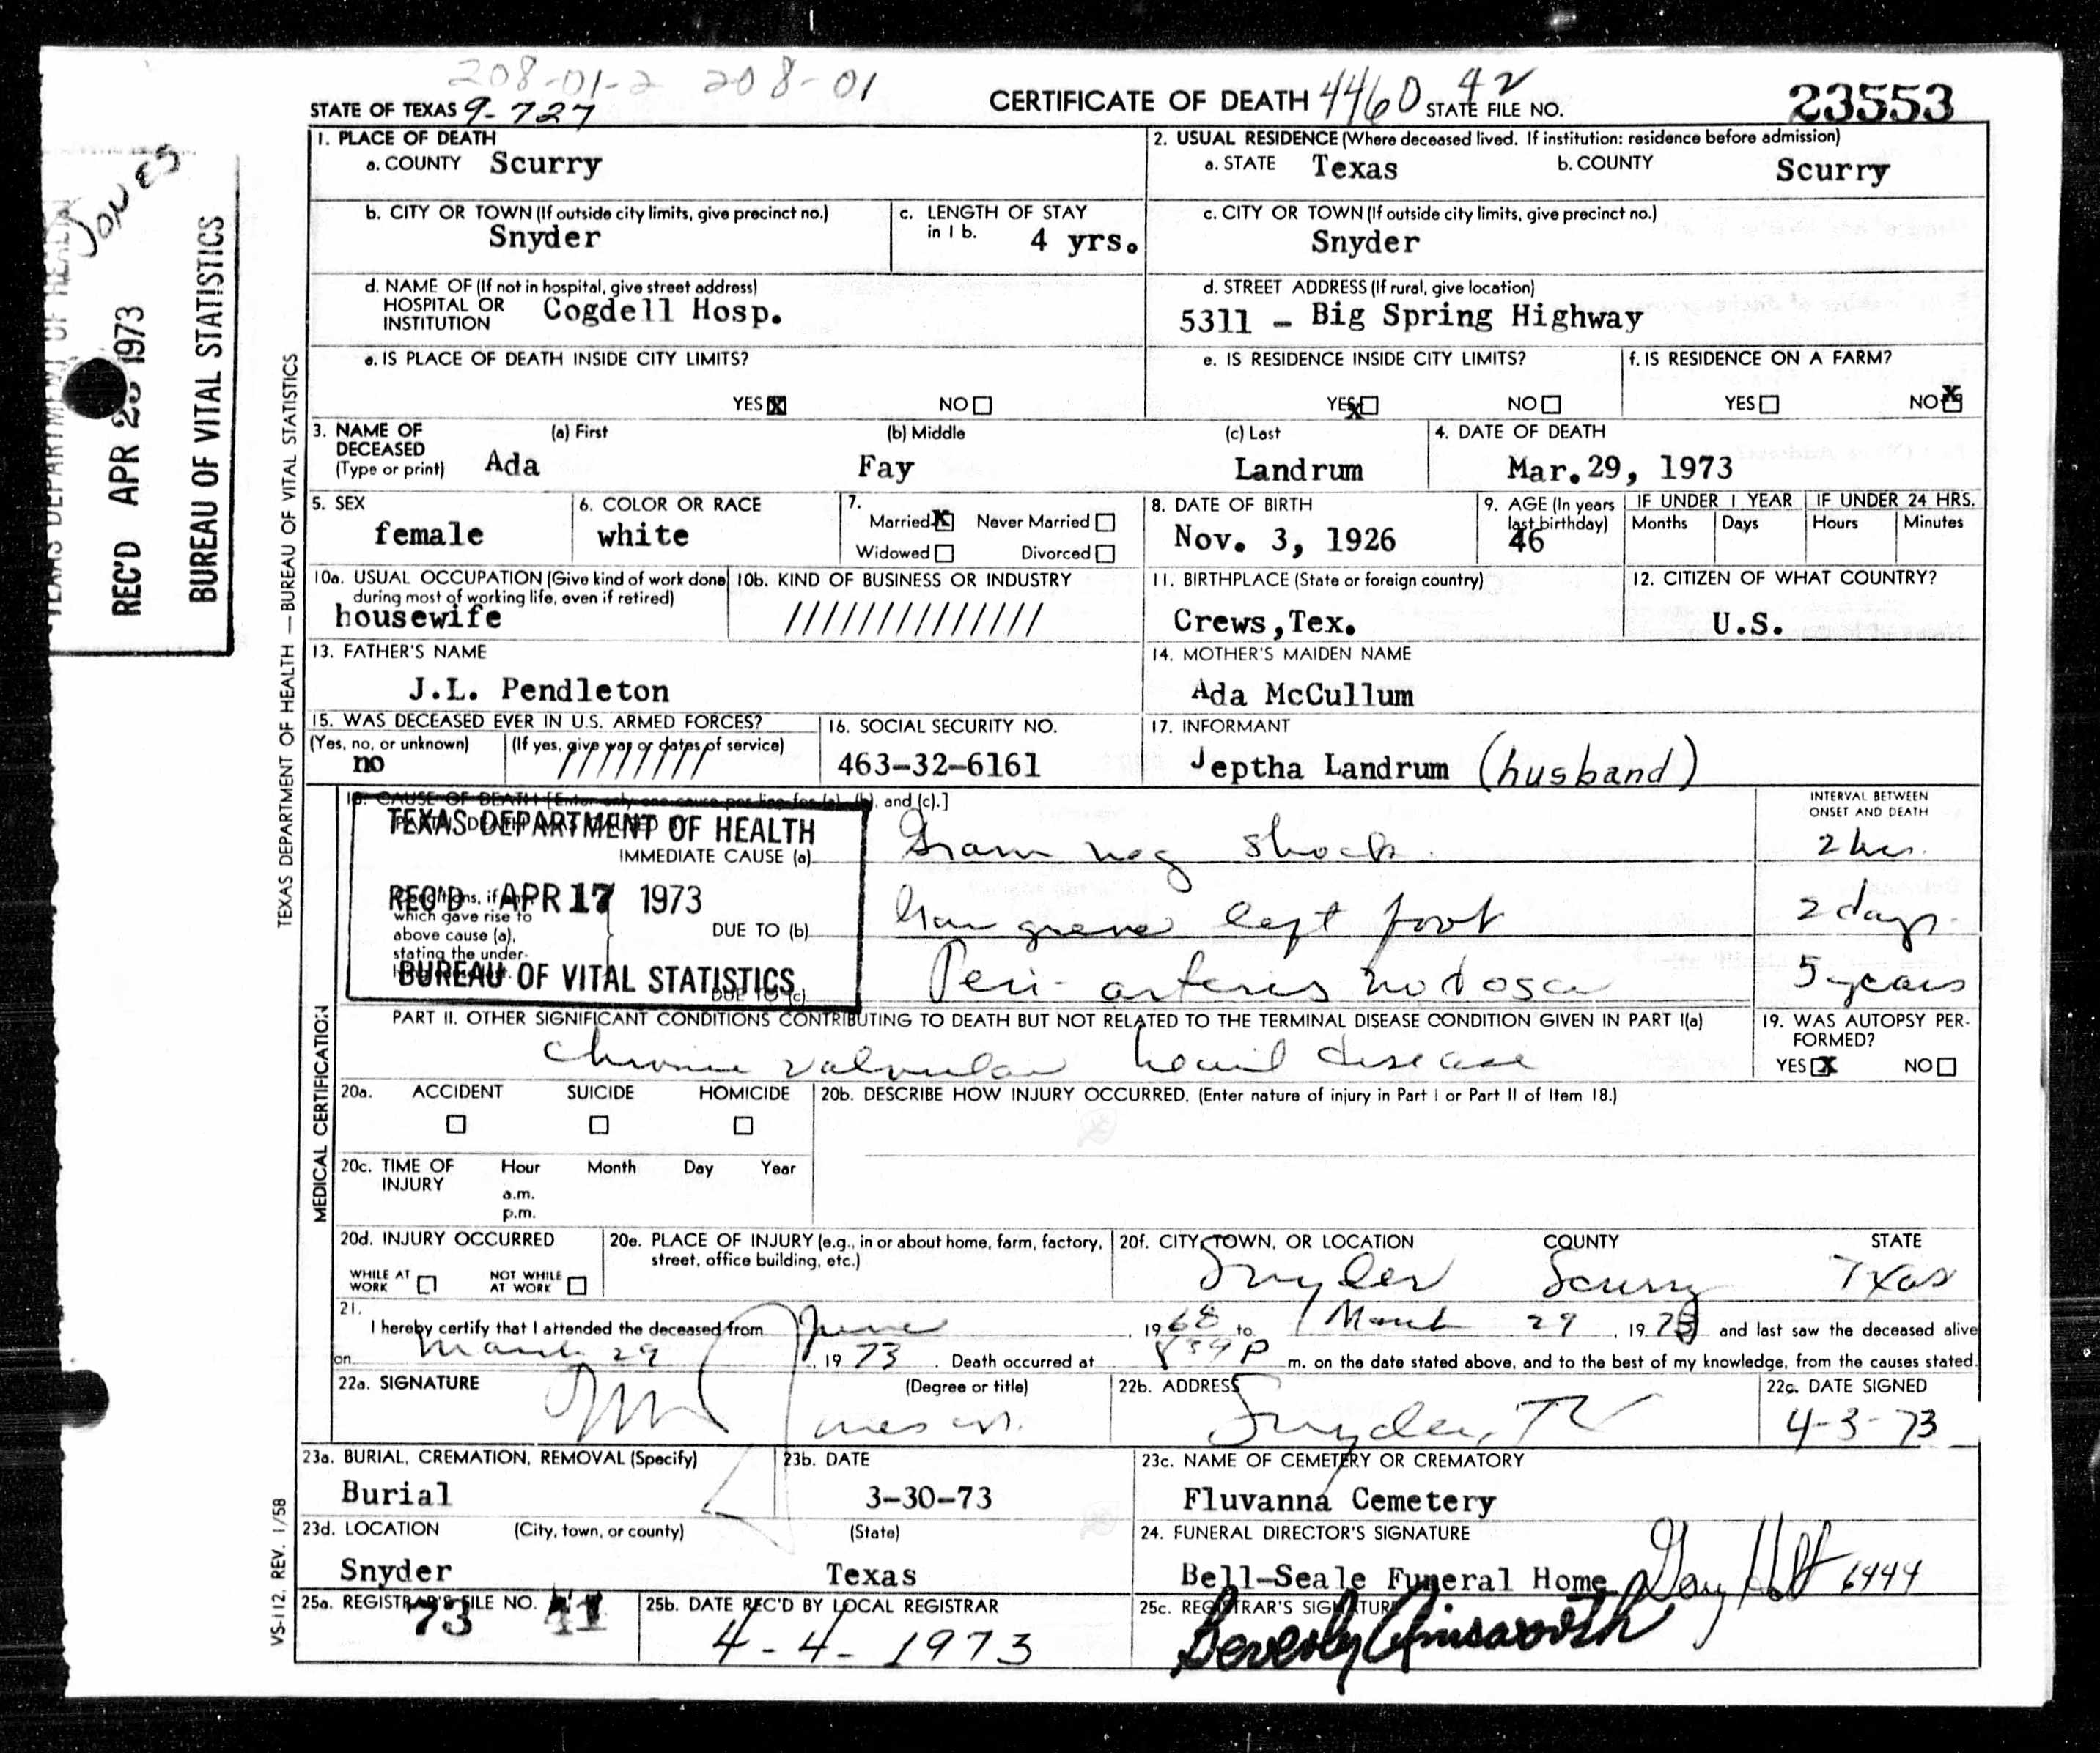 208-01-2 208-01
STATE OF TEXAS 9-727
CERTIFICATE OF DEATH 4460 42 STATE FILE NO. 23553
JONES
REC'D APR 1973
BUREAU OF VITAL STATISTICS
TEXAS DEPARTMENT OF HEALTH — BUREAU OF VITAL STATISTICS
1. PLACE OF DEATH
a. COUNTY Scurry
2. USUAL RESIDENCE (Where deceased lived. If institution: residence before admission)
a. STATE Texas b. COUNTY Scurry
b. CITY OR TOWN (If outside city limits, give precinct no.)
Snyder
c. LENGTH OF STAY in 1 b. 4 yrs.
c. CITY OR TOWN (If outside city limits, give precinct no.)
Snyder
d. NAME OF (If not in hospital, give street address)
HOSPITAL OR INSTITUTION Cogdell Hosp.
d. STREET ADDRESS (If rural, give location)
5311 - Big Spring Highway
e. IS PLACE OF DEATH INSIDE CITY LIMITS?
YES X NO
e. IS RESIDENCE INSIDE CITY LIMITS?
YES X NO
f. IS RESIDENCE ON A FARM?
YES NO X
3. NAME OF DECEASED (Type or print)
(a) First (b) Middle (c) Last
Ada Fay Landrum
4. DATE OF DEATH
Mar.29, 1973
5. SEX
female
6. COLOR OR RACE
white
7.
Married X Never Married
Widowed Divorced
8. DATE OF BIRTH
Nov. 3, 1926
9. AGE (In years last birthday)
46
IF UNDER 1 YEAR IF UNDER 24 HRS.
Months Days Hours Minutes
10a. USUAL OCCUPATION (Give kind of work done during most of working life, even if retired)
housewife
10b. KIND OF BUSINESS OR INDUSTRY
//////////////
11. BIRTHPLACE (State or foreign country)
Crews,Tex.
12. CITIZEN OF WHAT COUNTRY?
U.S.
13. FATHER'S NAME
J.L. Pendleton
14. MOTHER'S MAIDEN NAME
Ada McCullum
15. WAS DECEASED EVER IN U.S. ARMED FORCES?
(Yes, no, or unknown) (If yes, give war or dates of service)
no ////////
16. SOCIAL SECURITY NO.
463-32-6161
17. INFORMANT
Jeptha Landrum (husband)
18. CAUSE OF DEATH [Enter only one cause per line for (a), (b), and (c).]
INTERVAL BETWEEN ONSET AND DEATH
TEXAS DEPARTMENT OF HEALTH
IMMEDIATE CAUSE (a) Gram neg shock 2 hrs.
REC'D APR 17 1973
which gave rise to
above cause (a),
stating the under-
DUE TO (b) Gangrene left foot 2 days.
BUREAU OF VITAL STATISTICS
DUE TO (c) Peri-arteris nodosa 5 years
PART II. OTHER SIGNIFICANT CONDITIONS CONTRIBUTING TO DEATH BUT NOT RELATED TO THE TERMINAL DISEASE CONDITION GIVEN IN PART I(a)
Chronic valvular heart disease
19. WAS AUTOPSY PERFORMED?
YES X NO
MEDICAL CERTIFICATION
20a. ACCIDENT SUICIDE HOMICIDE
20b. DESCRIBE HOW INJURY OCCURRED. (Enter nature of injury in Part I or Part II of Item 18.)
20c. TIME OF INJURY Hour Month Day Year
a.m.
p.m.
20d. INJURY OCCURRED
WHILE AT WORK NOT WHILE AT WORK
20e. PLACE OF INJURY (e.g., in or about home, farm, factory, street, office building, etc.)
20f. CITY, TOWN, OR LOCATION COUNTY STATE
Snyder Scurry Texas
21.
I hereby certify that I attended the deceased from June, 1968 to March 29, 1973 and last saw the deceased alive
on March 29, 1973. Death occurred at 839 P m. on the date stated above, and to the best of my knowledge, from the causes stated.
22a. SIGNATURE (Degree or title)
Jones
22b. ADDRESS
Snyder, Tx
22c. DATE SIGNED
4-3-73
23a. BURIAL, CREMATION, REMOVAL (Specify)
Burial
23b. DATE
3-30-73
23c. NAME OF CEMETERY OR CREMATORY
Fluvanna Cemetery
23d. LOCATION (City, town, or county) (State)
Snyder Texas
24. FUNERAL DIRECTOR'S SIGNATURE
Bell-Seale Funeral Home Gary Holt 6444
25a. REGISTRAR'S FILE NO.
73 41
25b. DATE REC'D BY LOCAL REGISTRAR
4-4-1973
25c. REGISTRAR'S SIGNATURE
Beverly Ainsworth
VS-112. REV. 1/58